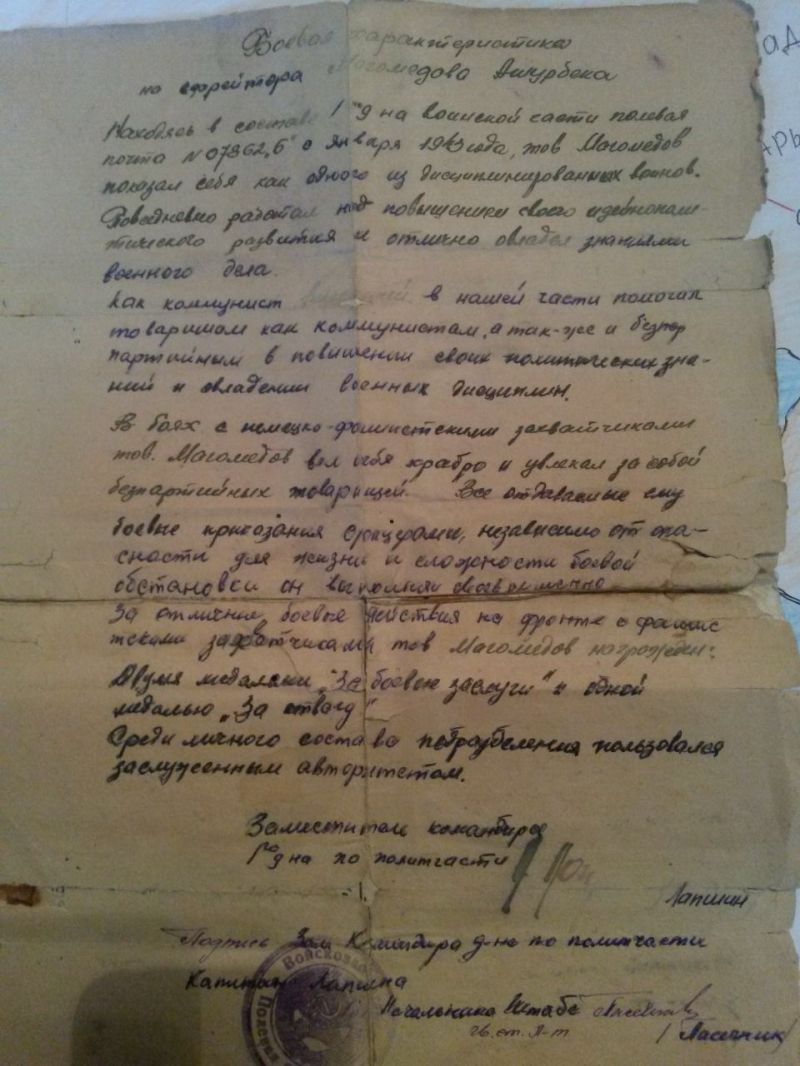 Боевая характеристика
на ефрейтора Магомедова Ашурбека
Находясь в составе 1го д-на воинской части полевая
почта №07362 "Б" с января 1943 года, тов Магомедов
показал себя как одного из дисциплинированных воинов.
Повседневно работал над повышением своего идейнополи-
тического развития и отлично овладел знаниями
военного дела.
Как коммунист в нашей части помогал
товарищам как коммунистам, а так-же и безпар
партийным в повышении своих политических зна-
ний и овладении военных дисциплин.
В боях с немецко-фашистскими захватчиками
тов. Магомедов вел себя храбро и увлекал за собой
безпартийных товарищей. Все отдаваемые ему
боевые приказания офицерами, независимо от опа-
сности для жизни и сложности боевой
обстановки он выполнял своевременно
За отличные боевые действия на фронте с фашис
тскими захватчиками тов Магомедов награжден:
Двумя медалями "За боевые заслуги" и одной
медалью "За отвагу"
Среди личного состава подразделения пользовался
заслуженным авторитетом.
Заместитель командира
1го д-на по политчасти
Лапшин
Подпись Зам Командира д-на по политчасти
Капитана Лапшина
Войсковая
Полевая
Начальника Штаба
Гв. ст. Л-т
/Пасечник/
ад